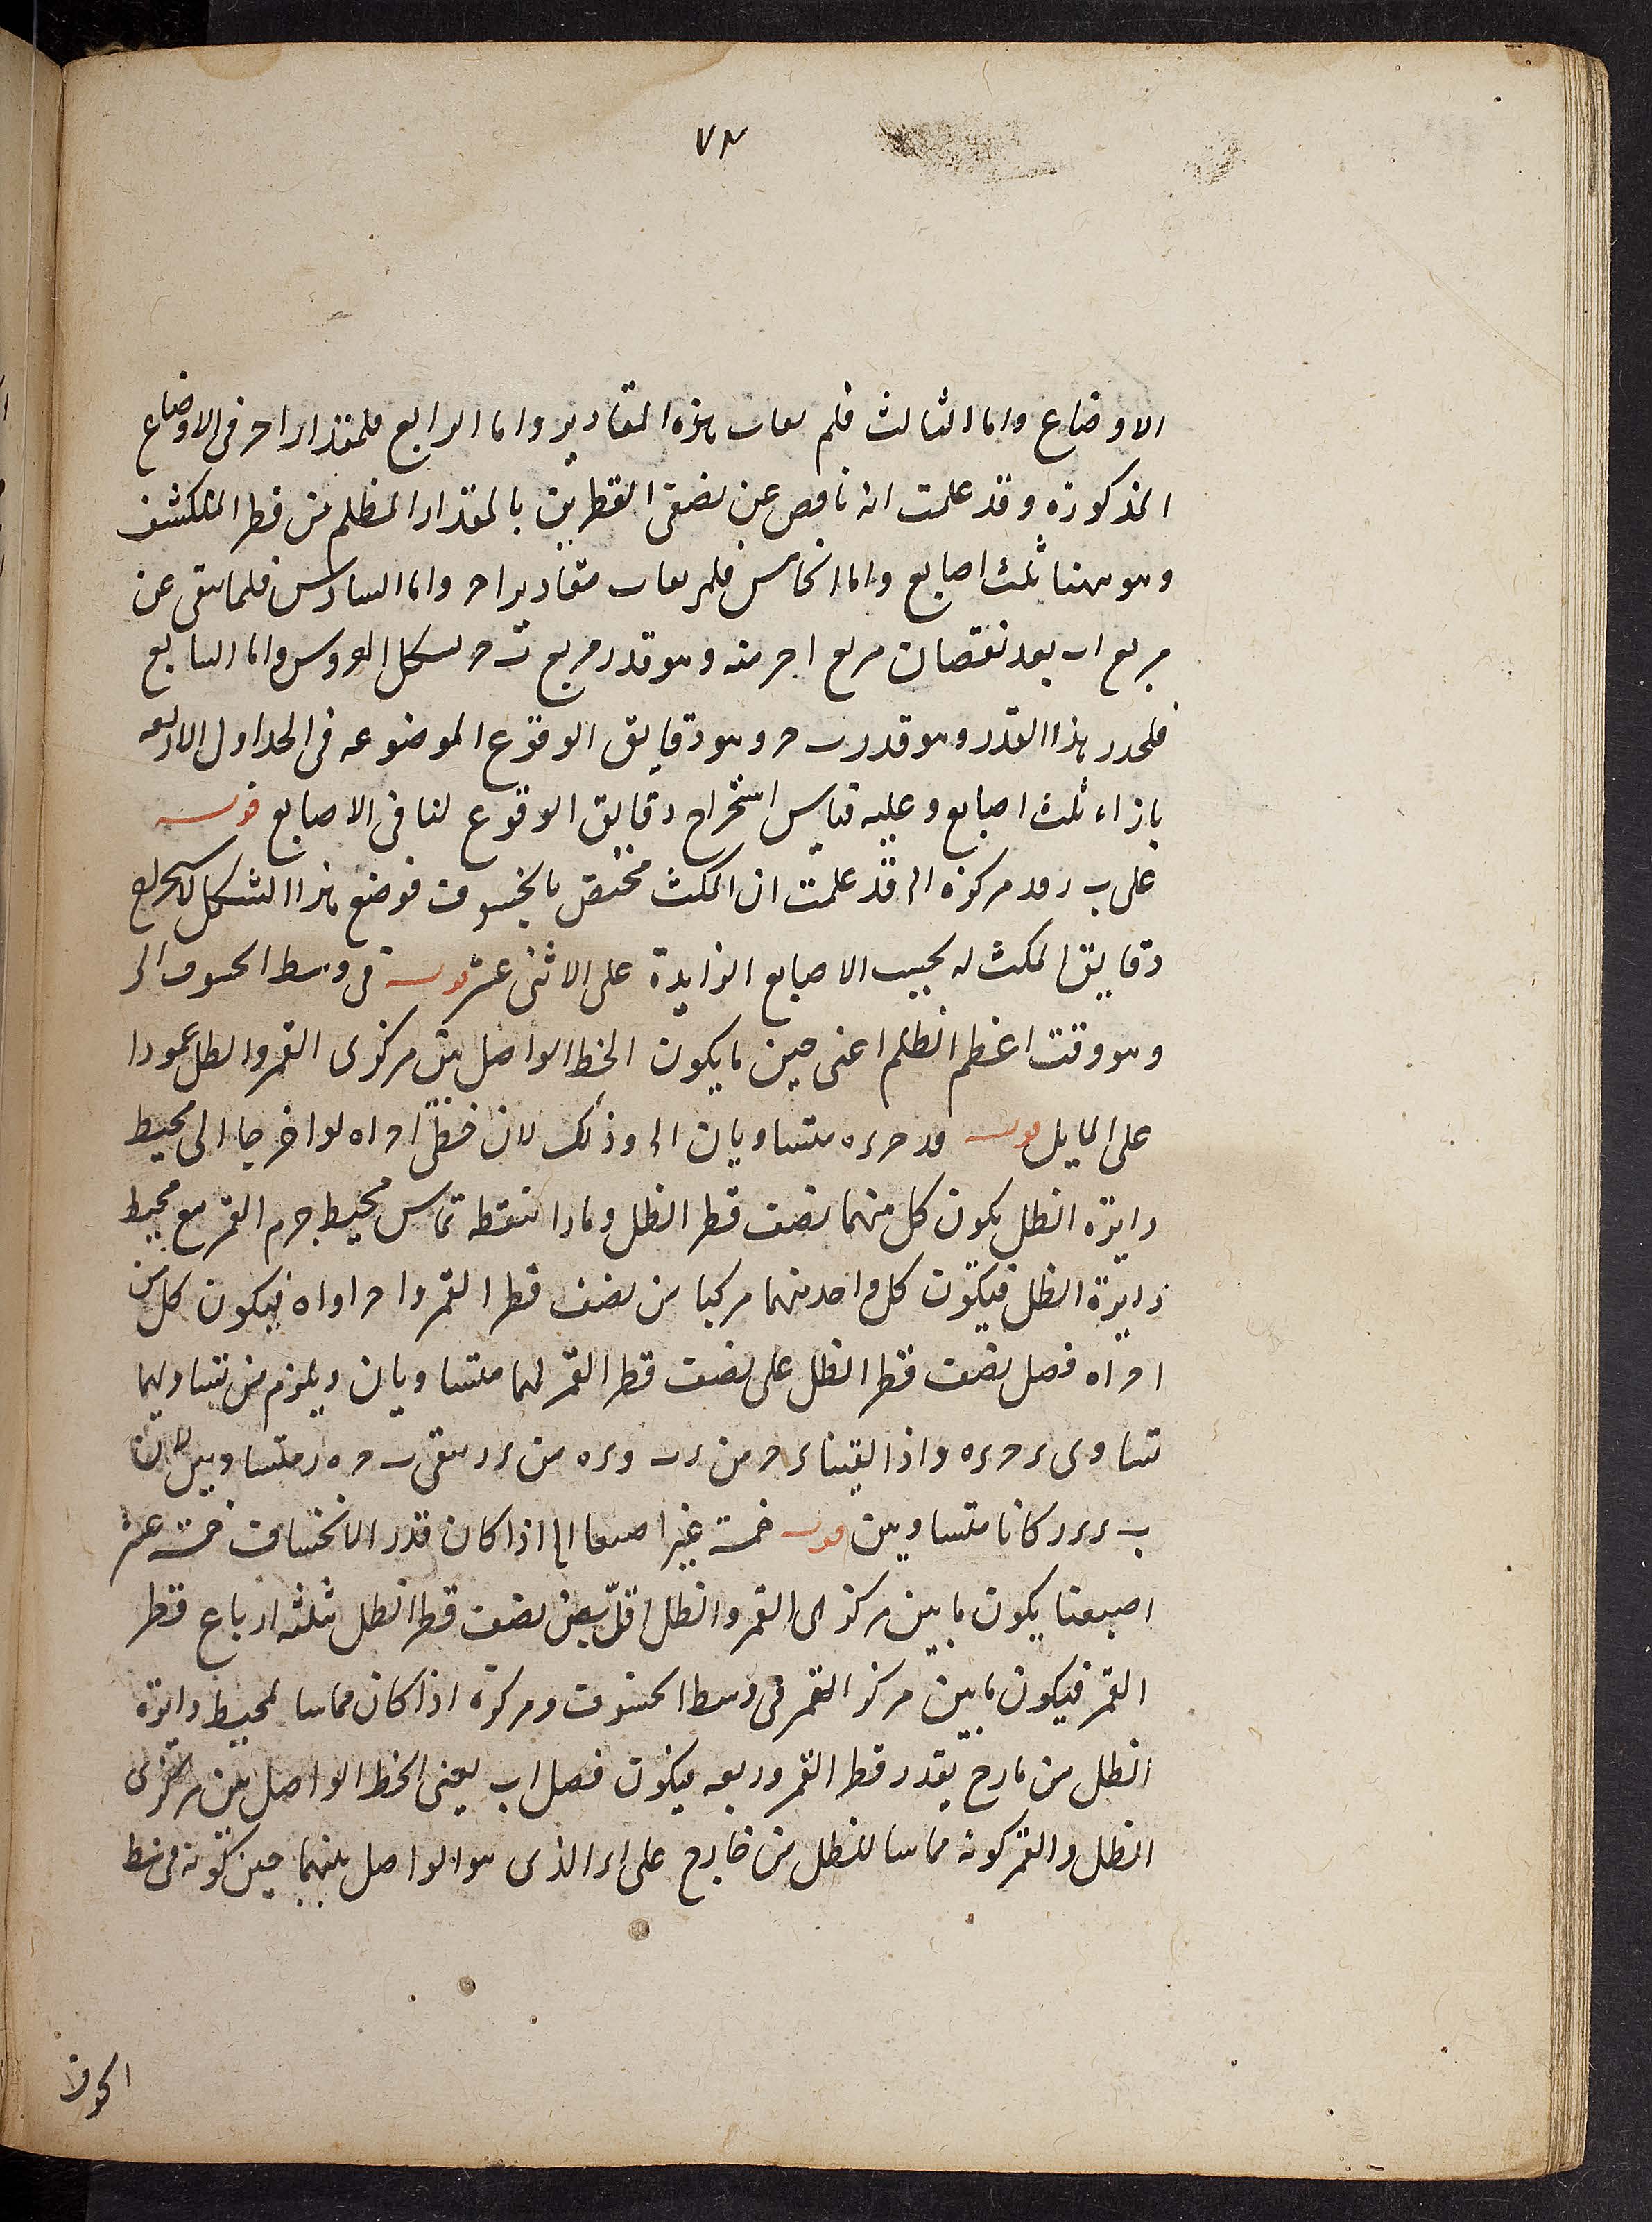 ٧٨
الاوضاع واما الثالث فلم بهذه المقادير واما الرابع فلمقدار ا ح فى الاوضاع
المذكورة وقد علمت انه ناقص عن نصفى القطرين بالمقدار المظلم من قطر المنكسف
وهو ههنا ثلث اصابع واما الخامس مقادير ا ح واما السادس فلما بقى عن
مربع اب بعد نقصان مربع ا ح منه وهو قدر مربع ب ح بشكل العروس واما السابع
فلجذر هذا القدر وهو قدر ب ح وهو دقايق الوقوع الموضوعه فى الجداول الاربعه
بازاء ثلث اصابع وعليه قياس استخراج دقايق الوقوع لنا فى الاصابع قوله
على ب ر ود مركزه الى قد علمت ان المكث مختص بالخسوف فوضع هذا الشكل لاستخراج
دقايق المكث له بحسب الاصابع الزايدة على الاثنى عشر قوله فى وسط الخسوف الى
وهو وقت اعظم الظلم اعنى حين ما يكون الخط الواصل بين مركزى القمر والظل عمودا
على المايل قوله ود ح ر ه متساويان الى وذلك لان خطى ا ح ا ه لو اخرجا الى محيط
دايرة الظل يكون كل منهما نصف قطر الظل ومارا بنقطة تماس محيط جرم القمر مع محيط
دايرة الظل فيكون كل واحد منهما مركبا من نصف قطر القمر وا ح او اه فيكون كل من
ا ح اه فضل نصف قطر الظل على نصف قطر القمر فهما متساويان ويلزم من تساويهما
تساوى ر ح ر ه واذا القينا ر ح من ر ب و ر ه من ر د بقى ب ح ه د متساويين لان
ب ر ر د كانا متساويين قوله خمسة عشر اصبعا الى اذا كان قدر الانخساف خمسة عشر
اصبعا يكون ما بين مركزى القمر والظل اقل من نصف قطر الظل بثلثه ارباع قطر
القمر فيكون ما بين مركز القمر فى وسط الخسوف ومركزه اذا كان مماسا لمحيط دايرة
الظل من خارج بقدر قطر القمر وربعه فيكون فضل اب يعنى الخط الواصل بين مركزى
الظل والقمر كونه مماسا للظل من خارج على ار الذى هو الواصل بينهما حين كونه فى وسط
الخوف